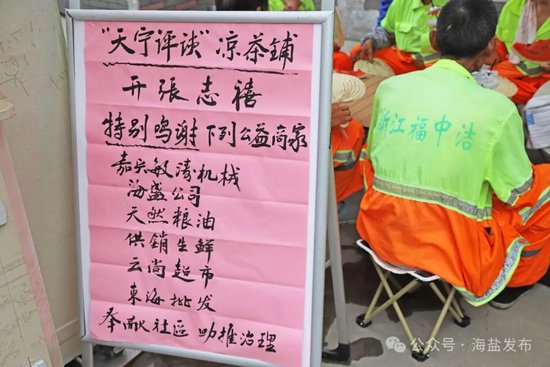 "天宁评谈"凉茶铺
开張志禧
特别鸣谢下列公益商家
嘉兴敏涛机械
海盛公司
天然粮油
供銷生鲜
云尚超市
東海批发
奉献社區 助推治理
浙江福中洁
公众号·海盐发布